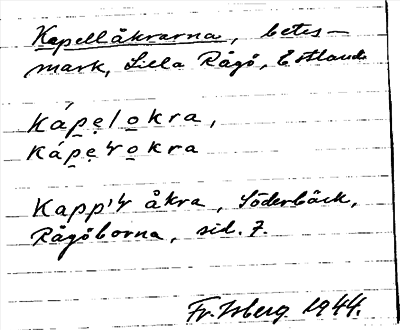 Kapellåkrarna, betes-
mark, Lilla Rågö, Estland.
kápẹlo̲kra,
kápẹɽo̲kra
Kapp'ɽ åkra, Söderbäck,
Rågöborna, sid. 7.
Fr. Isberg 1944.